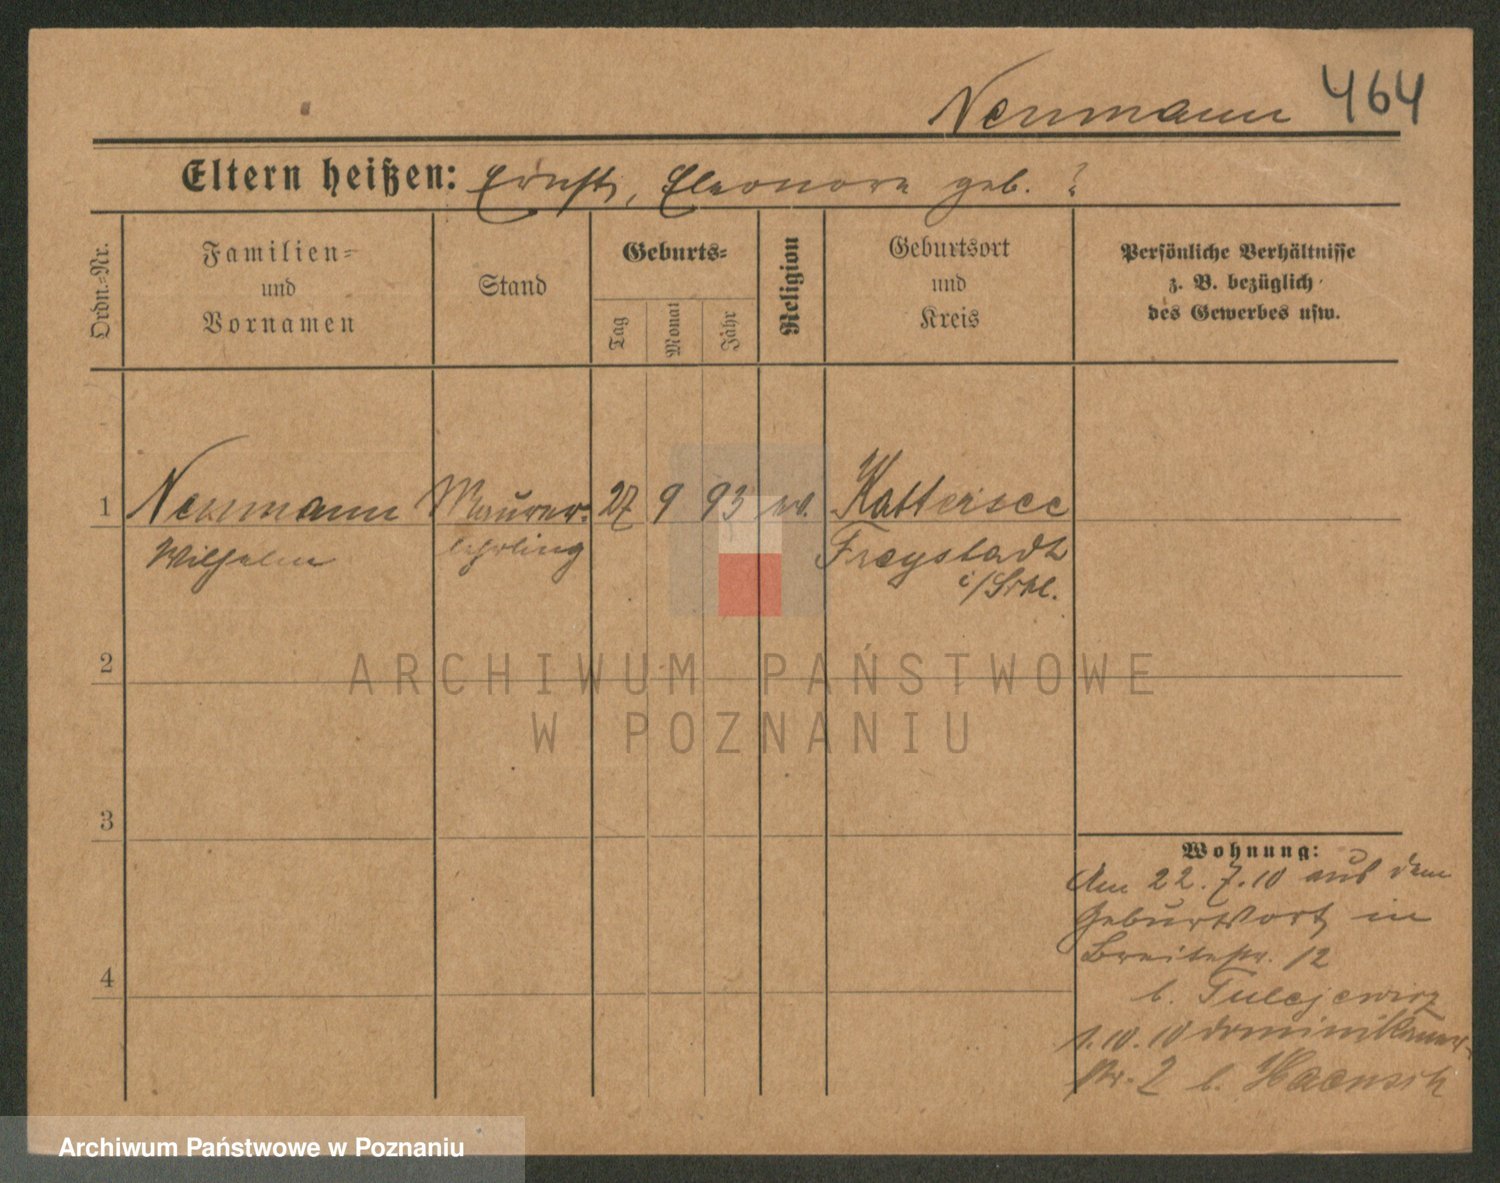 Neumann 464
Eltern heißen: Ernst, Eleonore geb. ?
Ordn.-Nr.
Familien-
und
Vornamen
Stand
Geburts-
Tag
Monat
Jahr
Religion
Geburtsort
und
Kreis
Persönliche Verhältnisse
z. B. bezüglich
des Gewerbes usw.
1 Neumann Maurer- 27 9 93 ev. Kattersee
Wilhelm lehrling Freystadt
i/Schl.
2
3
4
Wohnung:
Am 22.7.10 aus dem
Geburtsort in
Breitestr. 12
b. Tulejewicz
1.10.10 Dominikaner-
str. 2 b.
ARCHIWUM PAŃSTWOWE
W POZNANIU
Archiwum Państwowe w Poznaniu